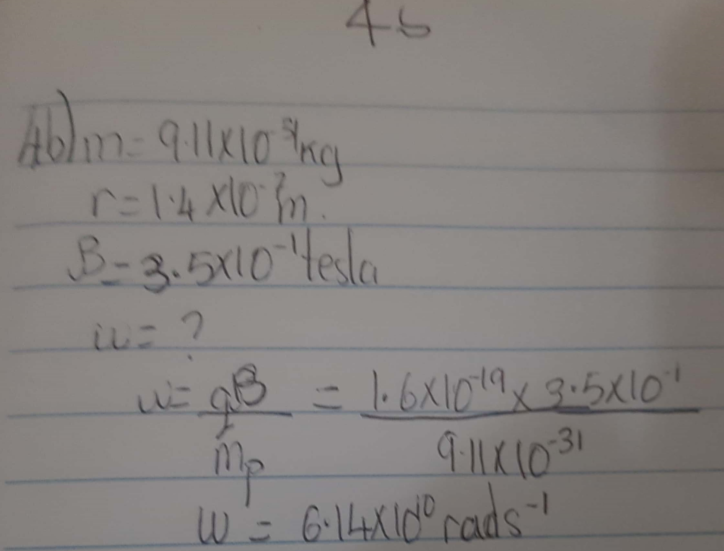 4b
4b) m = 9.11×10⁻³¹kg
r = 1.4×10⁻²m.
B = 3.5×10⁻¹tesla
w = ?
w = qB/mₚ = 1.6×10⁻¹⁹ × 3.5×10⁻¹/9.11×10⁻³¹
w = 6.14×10¹⁰ rads⁻¹